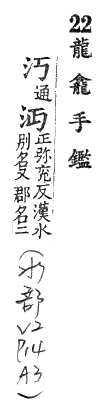 22 龍龕手鑑
汅通沔正弥兖反漢水
別名又郡名二
(水部 V2 P14 A3)